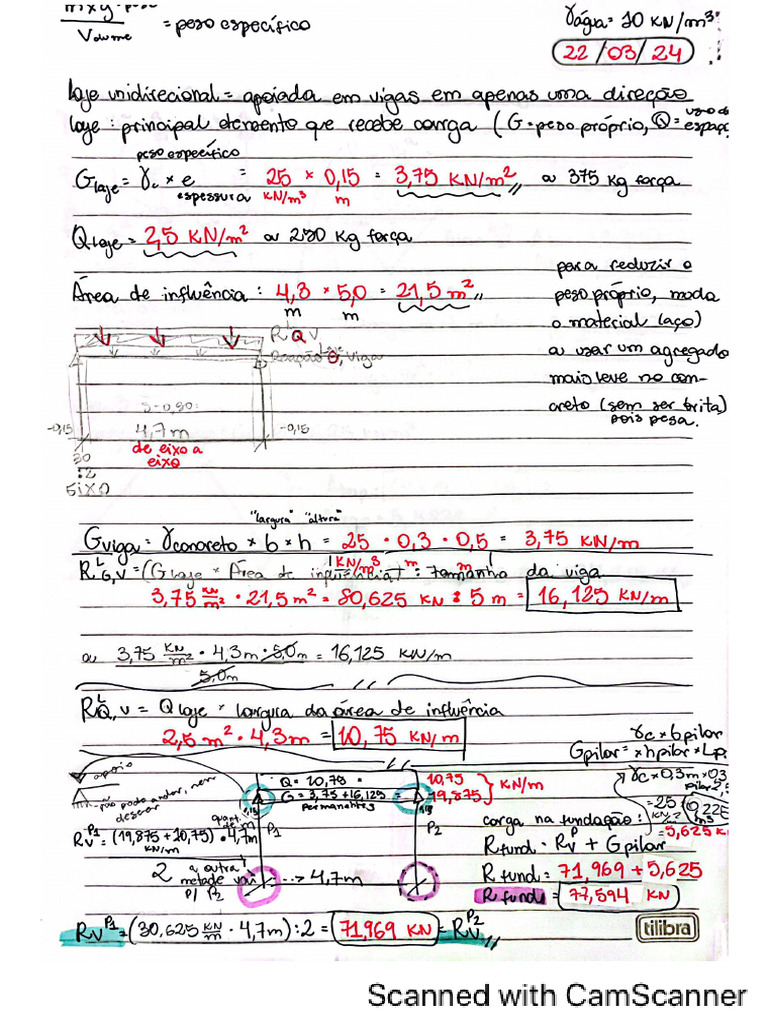 Volume = peso específico
γágua = 10 KN/m³
22/03/24
laje unidirecional = apoiada em vigas em apenas uma direção
laje: principal elemento que recebe carga (G=peso próprio, Q=
peso específico
G laje = γc × e = 25 × 0,15 = 3,75 KN/m² ou 375 Kg força
espessura KN/m³ m
Q laje = 2,5 KN/m² ou 250 Kg força
Área de influência: 4,3 × 5,0 = 21,5 m²
m m
para reduzir o
peso próprio, muda
o material (aço)
ou usar um agregado
mais leve no con-
creto (sem ser brita)
pois pesa.
R Q V
Reação Q, viga
-0,15 4,7m -0,15
de eixo a
eixo
30
:2
EIXO
"largura" "altura"
G viga = γconcreto × b × h = 25 · 0,3 · 0,5 = 3,75 KN/m
KN/m³ m m
R L G,V = (G laje × Área de influência) : Tamanho da viga
3,75 KN/m² · 21,5 m² = 80,625 KN : 5 m = 16,125 KN/m
ou 3,75 KN/m² · 4,3m · 5,0m = 16,125 KN/m
5,0m
R L Q,V = Q laje × largura da área de influência
2,5 m² · 4,3m = 10,75 KN/m
γc × b pilar
G pilar = × h pilar × Lp
apoio
não pode andar, nem
descer
Q = 10,75
G = 3,75 + 16,125 =
permanentes
10,75
19,875 } KN/m
γc × 0,3m × 0,3
= 25
= 5,625 K
Rv P1 = (19,875 + 10,75) · 4,7m
KN/m
2
a outra
metade vai
p/ P2
P1
P2
4,7m
carga na fundação:
R fund = Rv P + G pilar
R fund = 71,969 + 5,625
R fund = 77,594 KN
Rv P1 = (30,625 KN/m · 4,7m) : 2 = 71,969 KN = Rv P2
tilibra
Scanned with CamScanner